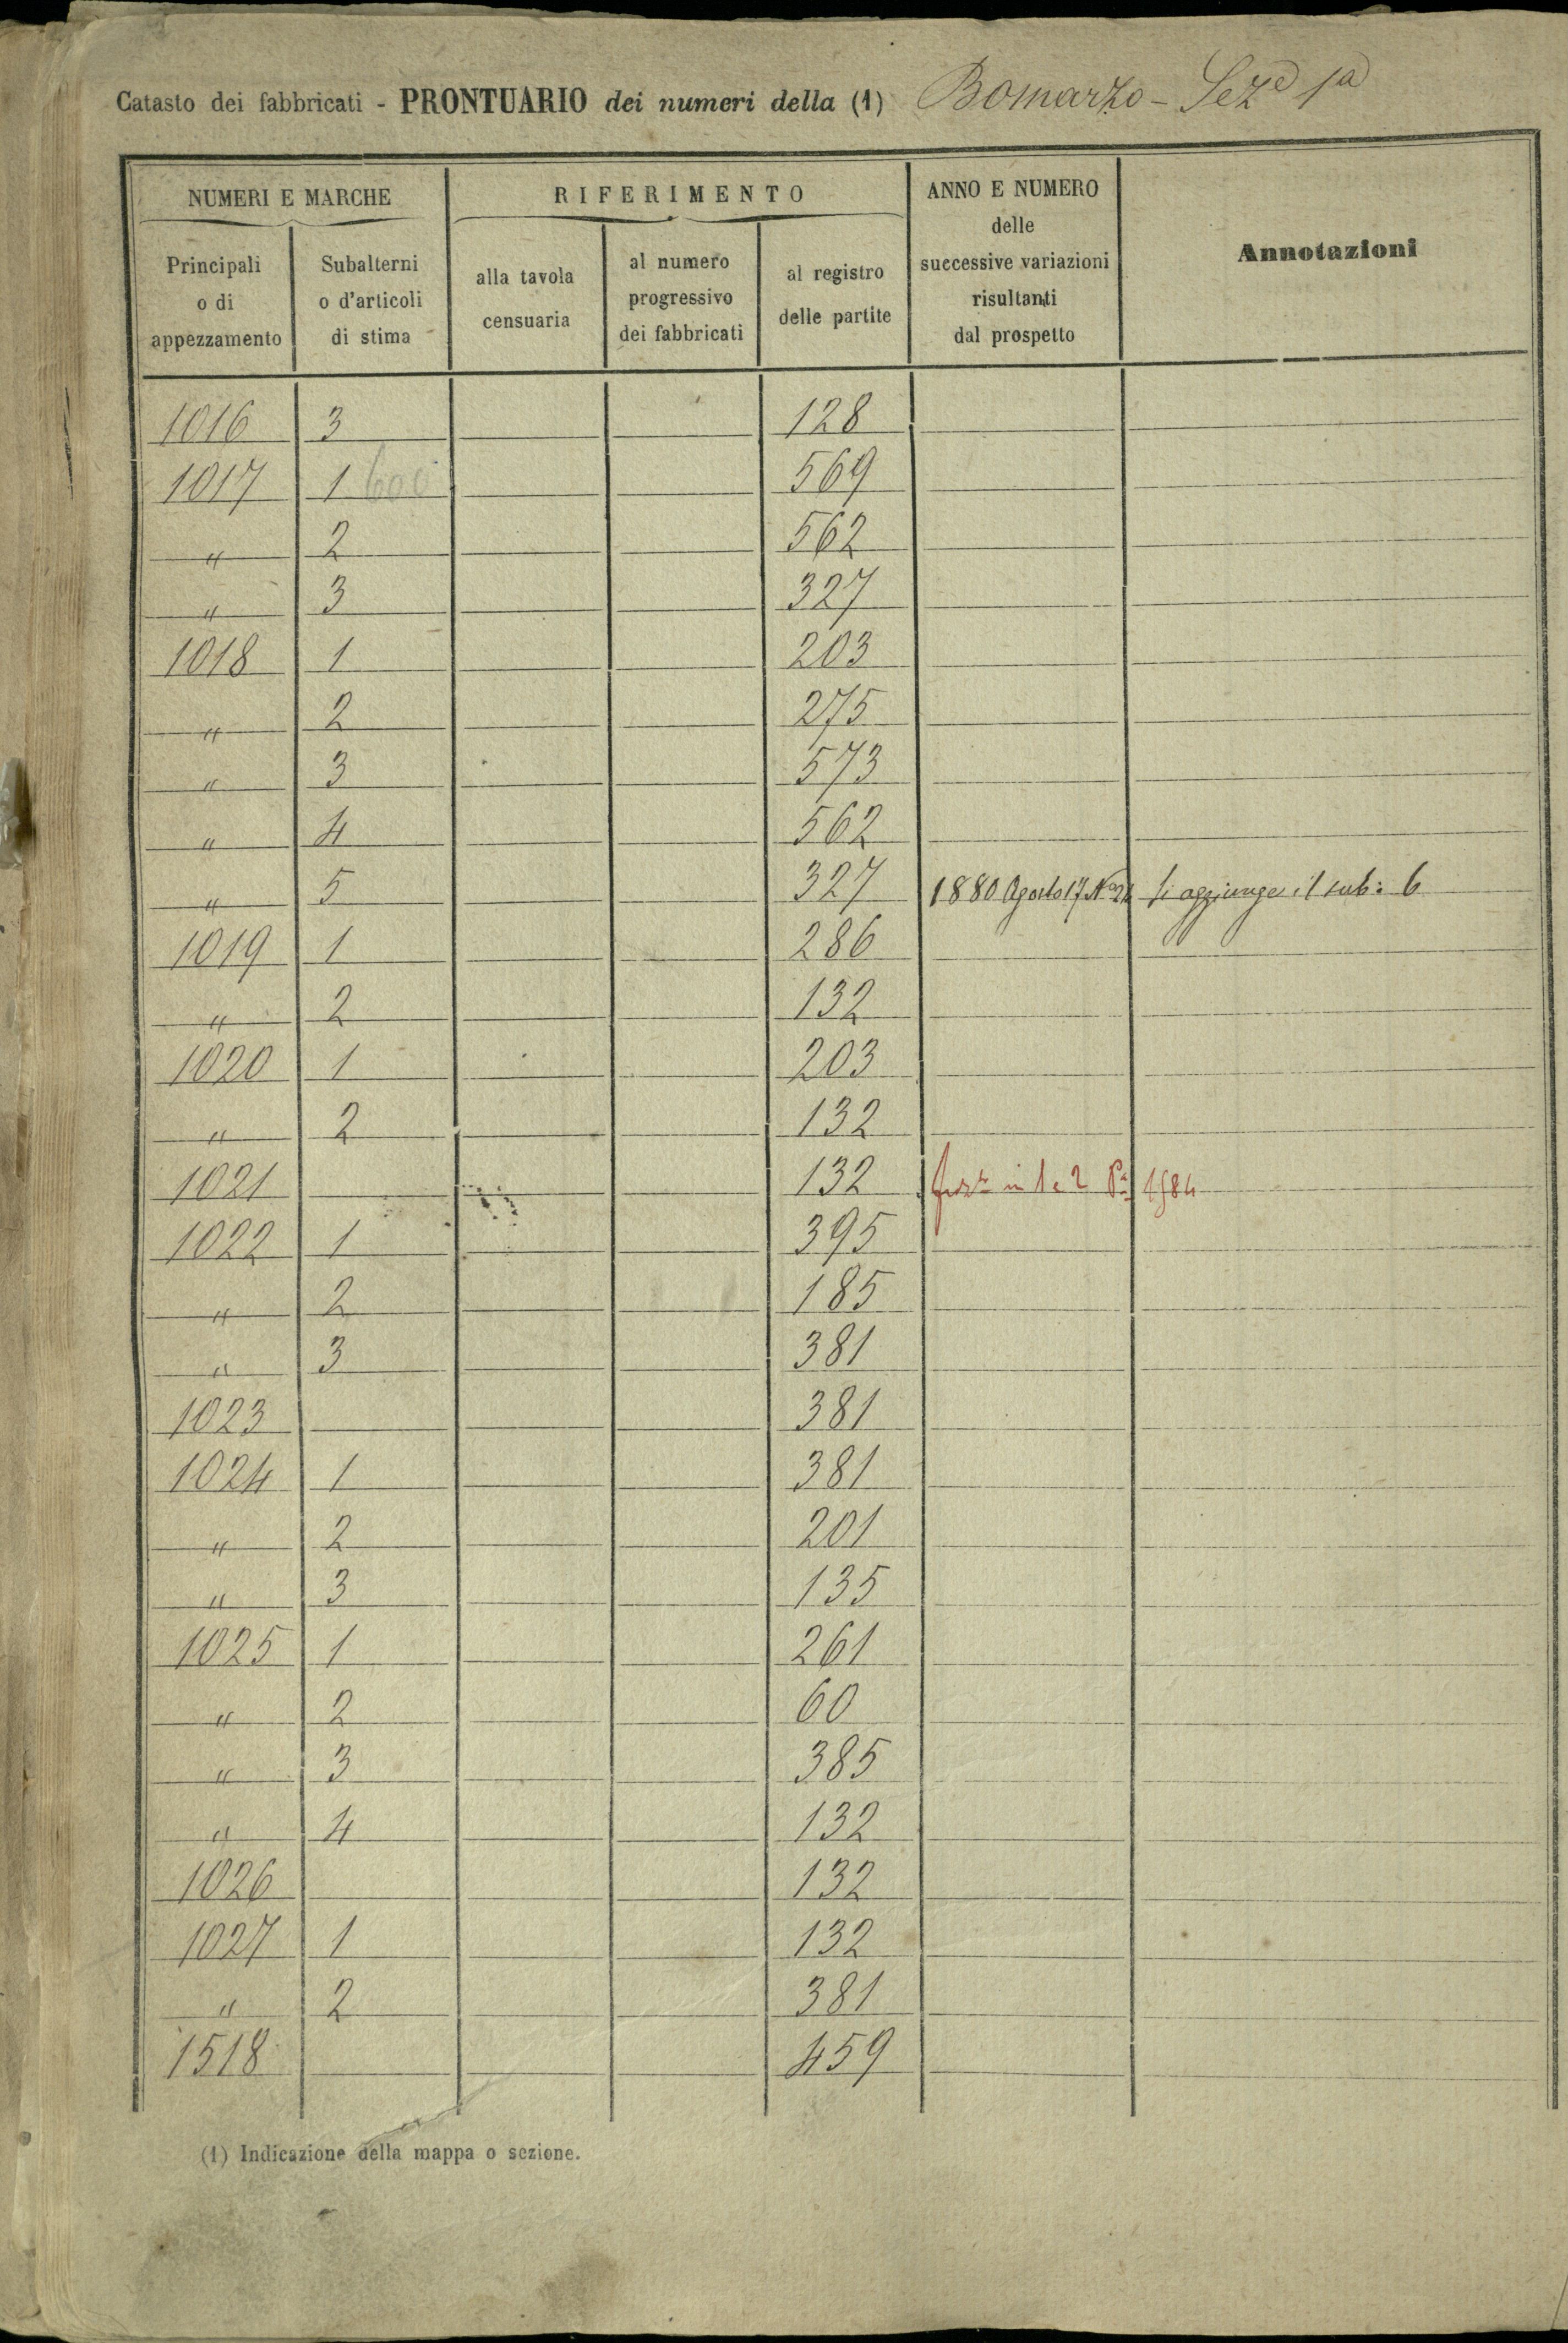 Catasto dei fabbricati - PRONTUARIO dei numeri della (1) Bomarzo - Seze 1a
NUMERI E MARCHE
RIFERIMENTO
ANNO E NUMERO
delle
successive variazioni
risultanti
dal prospetto
Annotazioni
Principali
o di
appezzamento
Subalterni
o d'articoli
di stima
alla tavola
censuaria
al numero
progressivo
dei fabbricati
al registro
delle partite
1016 3 128
1017 1 600 569
" 2 562
" 3 327
1018 1 203
" 2 275
" 3 573
" 4 562
" 5 327 1880 Agosto 17 No 21 Si aggiunge il sub: 6
1019 1 286
" 2 132
1020 1 203
" 2 132
1021 132 in 1 e 2
1022 1 395
" 2 185
" 3 381
1023 381
1024 1 381
" 2 201
" 3 135
1025 1 261
" 2 60
" 3 385
" 4 132
1026 132
1027 1 132
" 2 381
1518 459
(1) Indicazione della mappa o sezione.